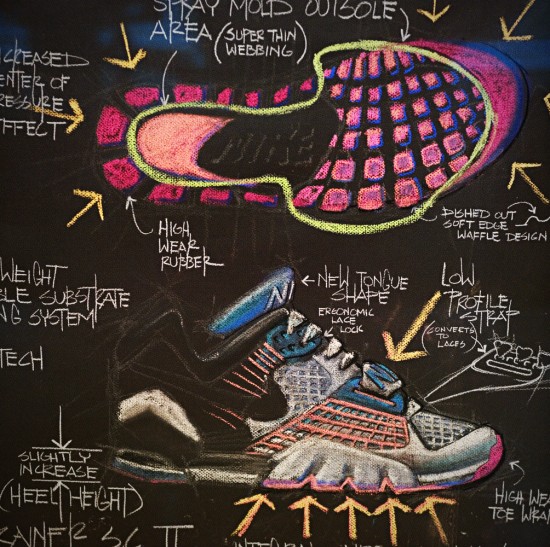 SPRAY MOLD OUTSOLE
AREA (SUPER THIN
WEBBING)
CREASED
ENTER OF
RESSURE
EFFECT
NIKE
HIGH
WEAR
RUBBER
DISHED OUT
SOFT EDGE
WAFFLE DESIGN
WEIGHT
BLE SUBSTRATE
NG SYSTEM
TECH
NEW TONGUE
SHAPE
ERGONOMIC
LACE
LOCK
LOW
PROFILE
STRAP
(CONVERTS
TO
LACES)
SLIGHTLY
INCREASE
(HEEL HEIGHT)
HIGH WEA
TOE WRAP
RAINER SC II